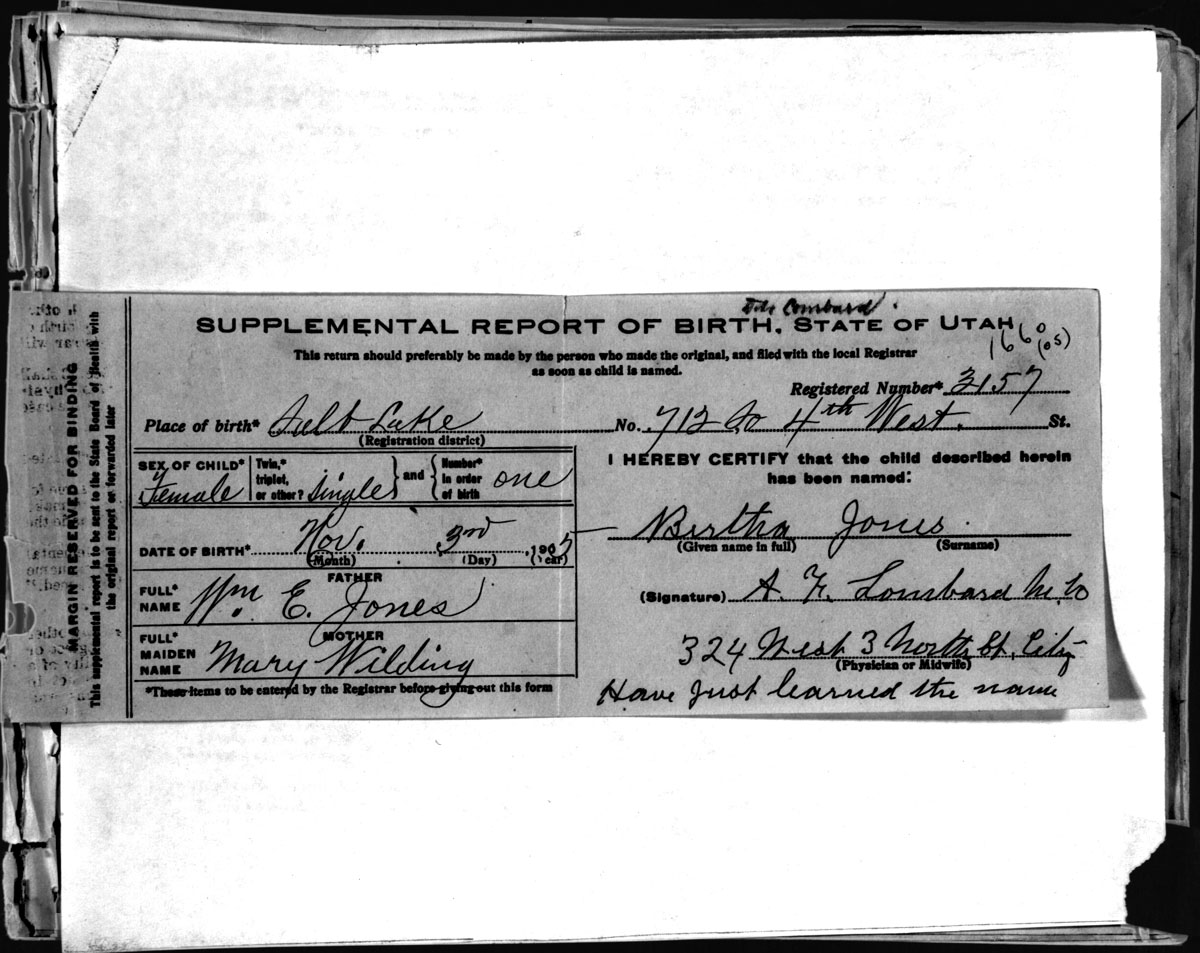 Lombard
SUPPLEMENTAL REPORT OF BIRTH, STATE OF UTAH
1660
(05)
This return should preferably be made by the person who made the original, and filed with the local Registrar
as soon as child is named.
Registered Number* 3157
Place of birth* Salt Lake No. 712 So 4th West. St.
(Registration district)
SEX OF CHILD* Female Twin,* triplet, or other? Single and Number* in order of birth one
DATE OF BIRTH* Nov. 3rd, 1905
(Month) (Day) (Year)
FATHER
FULL* NAME Wm. E. Jones
MOTHER
FULL* MAIDEN NAME Mary Wilding
*These items to be entered by the Registrar before giving out this form
I HEREBY CERTIFY that the child described herein
has been named:
Bertha Jones.
(Given name in full) (Surname)
(Signature) A. F. Lombard M.D
324 West 3 North St, City
(Physician or Midwife)
Have just learned the name
MARGIN RESERVED FOR BINDING
This supplemental report is to be sent to the State Board of Health with
the original report or forwarded later